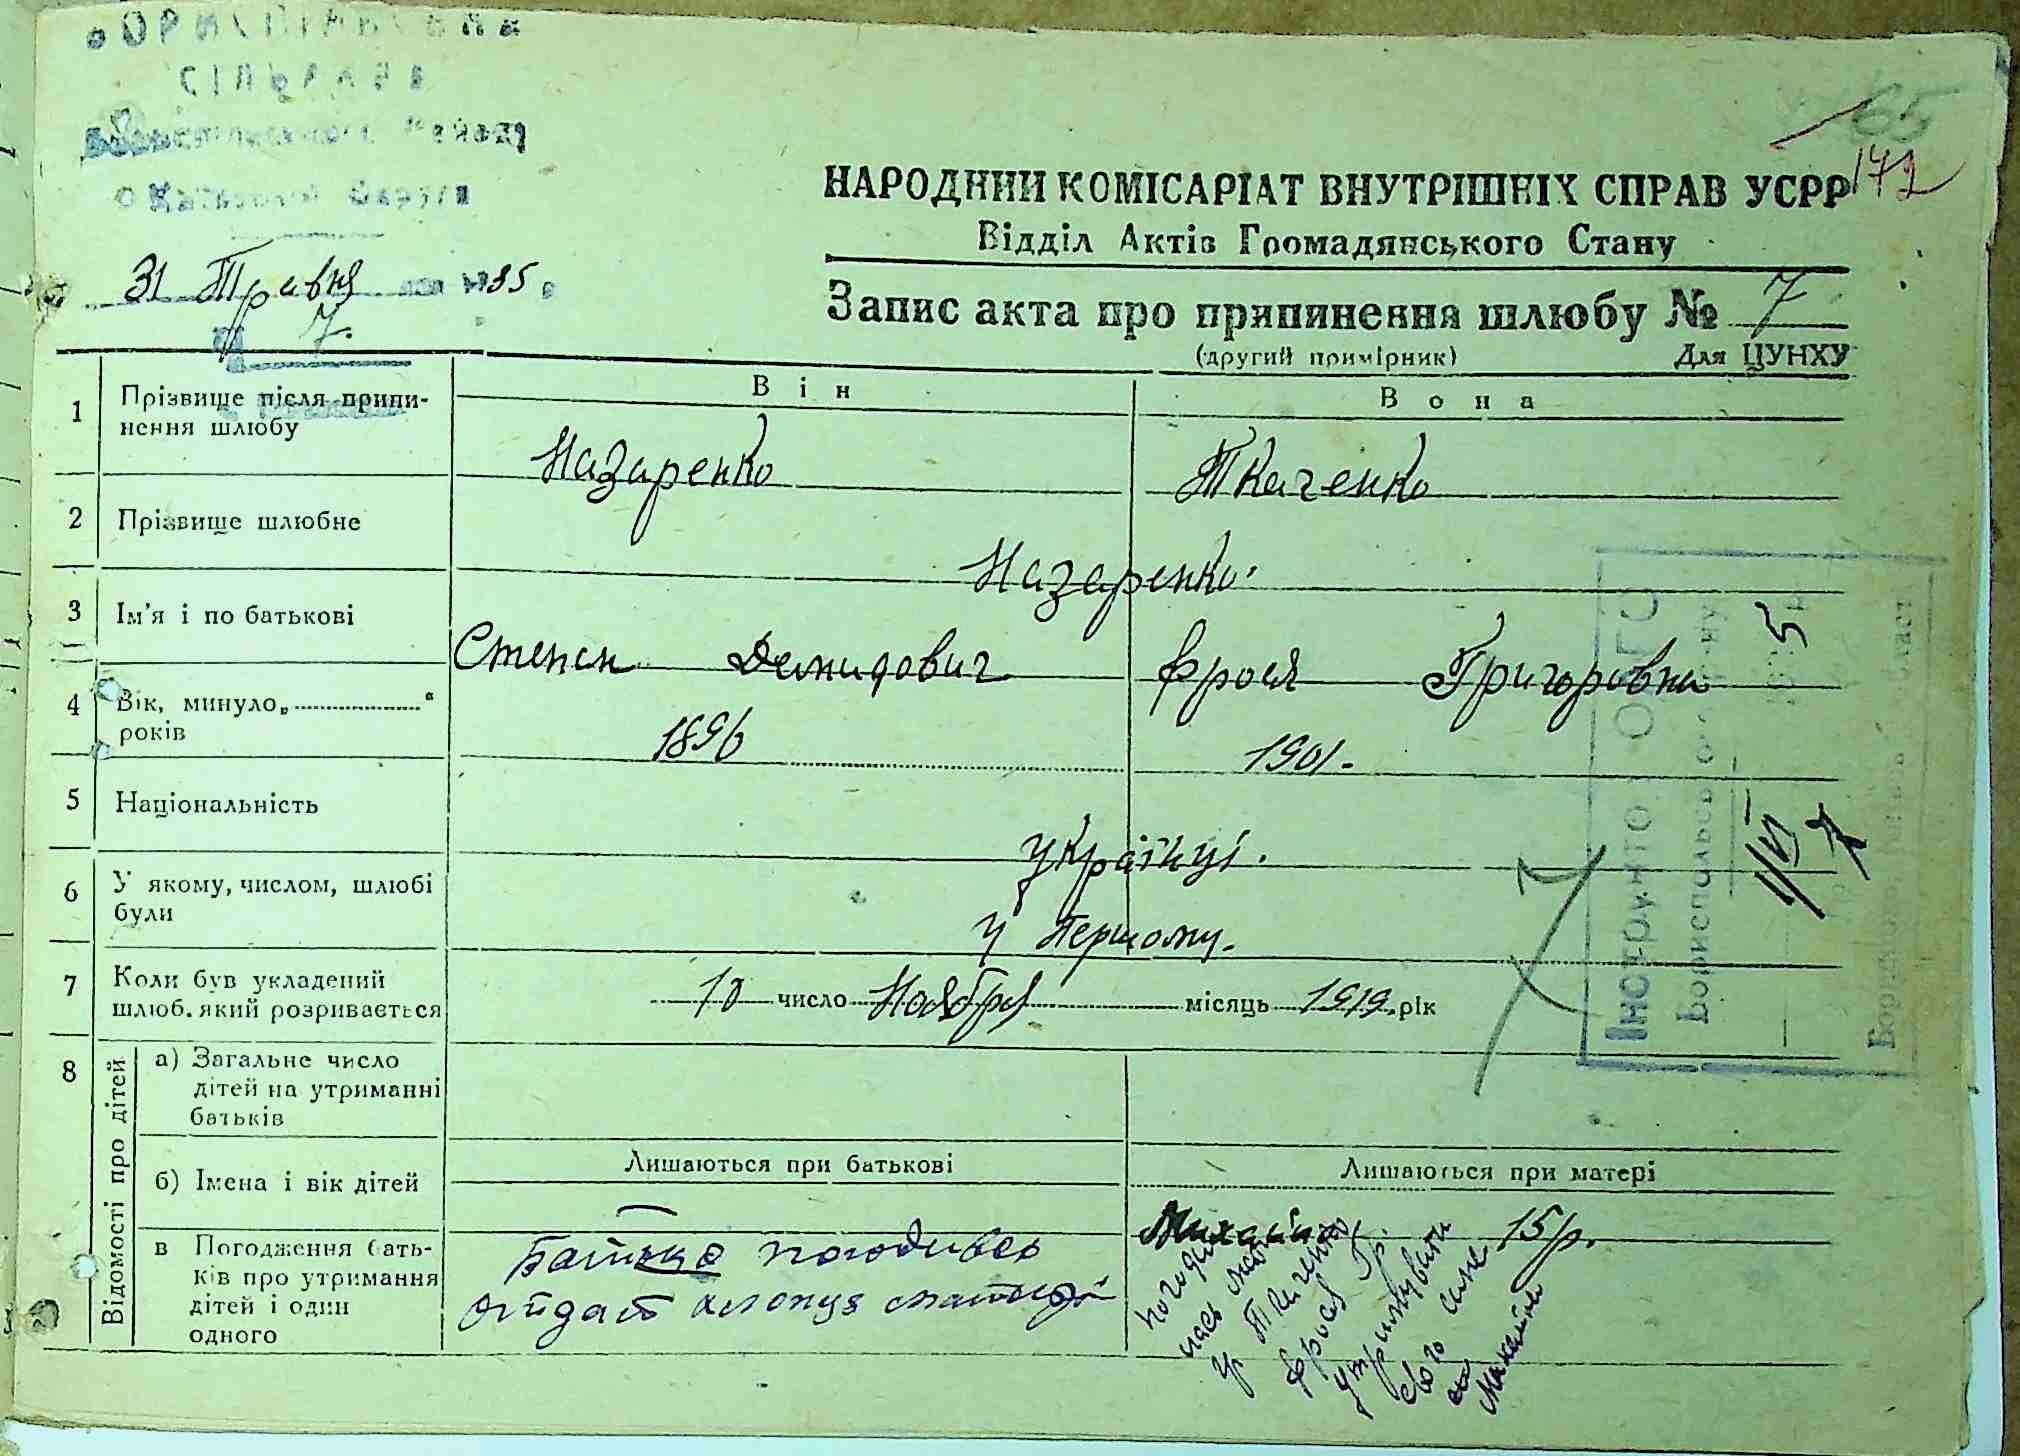 65
172
НАРОДНИЙ КОМІСАРІАТ ВНУТРІШНІХ СПРАВ УСРР
Відділ Актів Громадянського Стану
31 Травня 1935
7.
Запис акта про припинення шлюбу № 7
(другий примірник) Для ЦУНХУ
Він Вона
1 Прізвище після припи-
нення шлюбу
Назаренко Ткаченко
2 Прізвище шлюбне
Назаренко.
3 Ім'я і по батькові
Степан Демидович Фрося Григоровна
4 Вік, минуло „ “
років
1896 1901.
5 Національність
Українці.
6 У якому, числом, шлюбі
були
У першому.
7 Коли був укладений
шлюб, який розривається
10 число Ноября місяць 1919. рік
8 Відомості про дітей
а) Загальне число
дітей на утриманні
батьків
б) Імена і вік дітей
Лишаються при батькові Лишаються при матері
15 р.
в Погодження бать-
ків про утримання
дітей і один
одного
Батько погодивсь
хлопця
Ткаченко
Фрося Гр.
утримувати
свого сина
Бориспільсько
5
1/VI
7